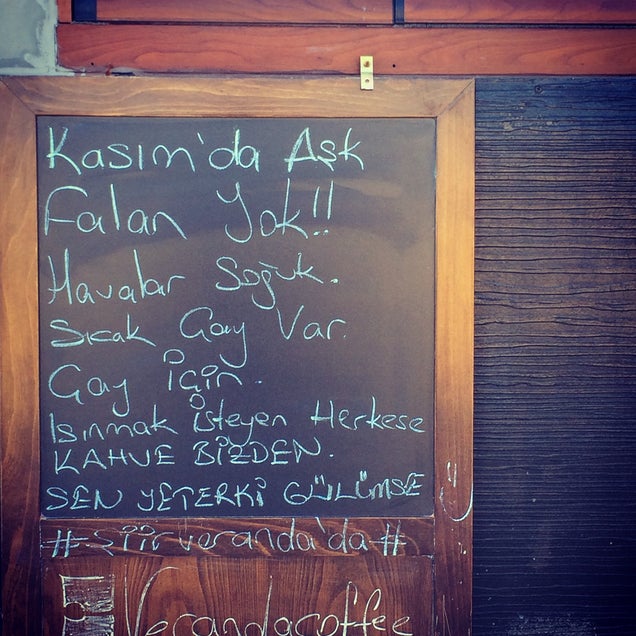 Kasım'da Aşk
Falan Yok!!
Havalar Soğuk.
Sıcak Çay Var.
Çay İçin.
Isınmak İsteyen Herkese
KAHVE BİZDEN.
SEN YETERKİ GÜLÜMSE
#şiirveranda'da#
Verandacoffee